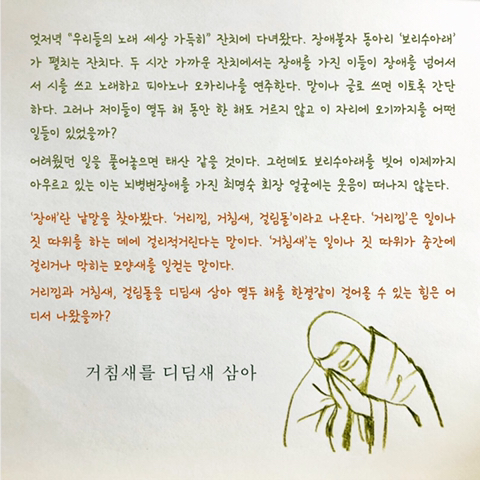 엊저녁 "우리들의 노래 세상 가득히" 잔치에 다녀왔다. 장애불자 동아리 '보리수아래'
가 펼치는 잔치다. 두 시간 가까운 잔치에서는 장애를 가진 이들이 장애를 넘어서
서 시를 쓰고 노래하고 피아노나 오카리나를 연주한다. 말이나 글로 쓰면 이토록 간단
하다. 그러나 저이들이 열두 해 동안 한 해도 거르지 않고 이 자리에 오기까지를 어떤
일들이 있었을까?
어려웠던 일을 풀어놓으면 태산 같을 것이다. 그런데도 보리수아래를 빚어 이제까지
아우르고 있는 이는 뇌병변장애를 가진 최명숙 회장 얼굴에는 웃음이 떠나지 않는다.
'장애'란 낱말을 찾아봤다. '거리낌, 거침새, 걸림돌'이라고 나온다. '거리낌'은 일이나
짓 따위를 하는 데에 걸리적거린다는 말이다. '거침새'는 일이나 짓 따위가 중간에
걸리거나 막히는 모양새를 일컫는 말이다.
거리낌과 거침새, 걸림돌을 디딤새 삼아 열두 해를 한결같이 걸어올 수 있는 힘은 어
디서 나왔을까?
거침새를 디딤새 삼아